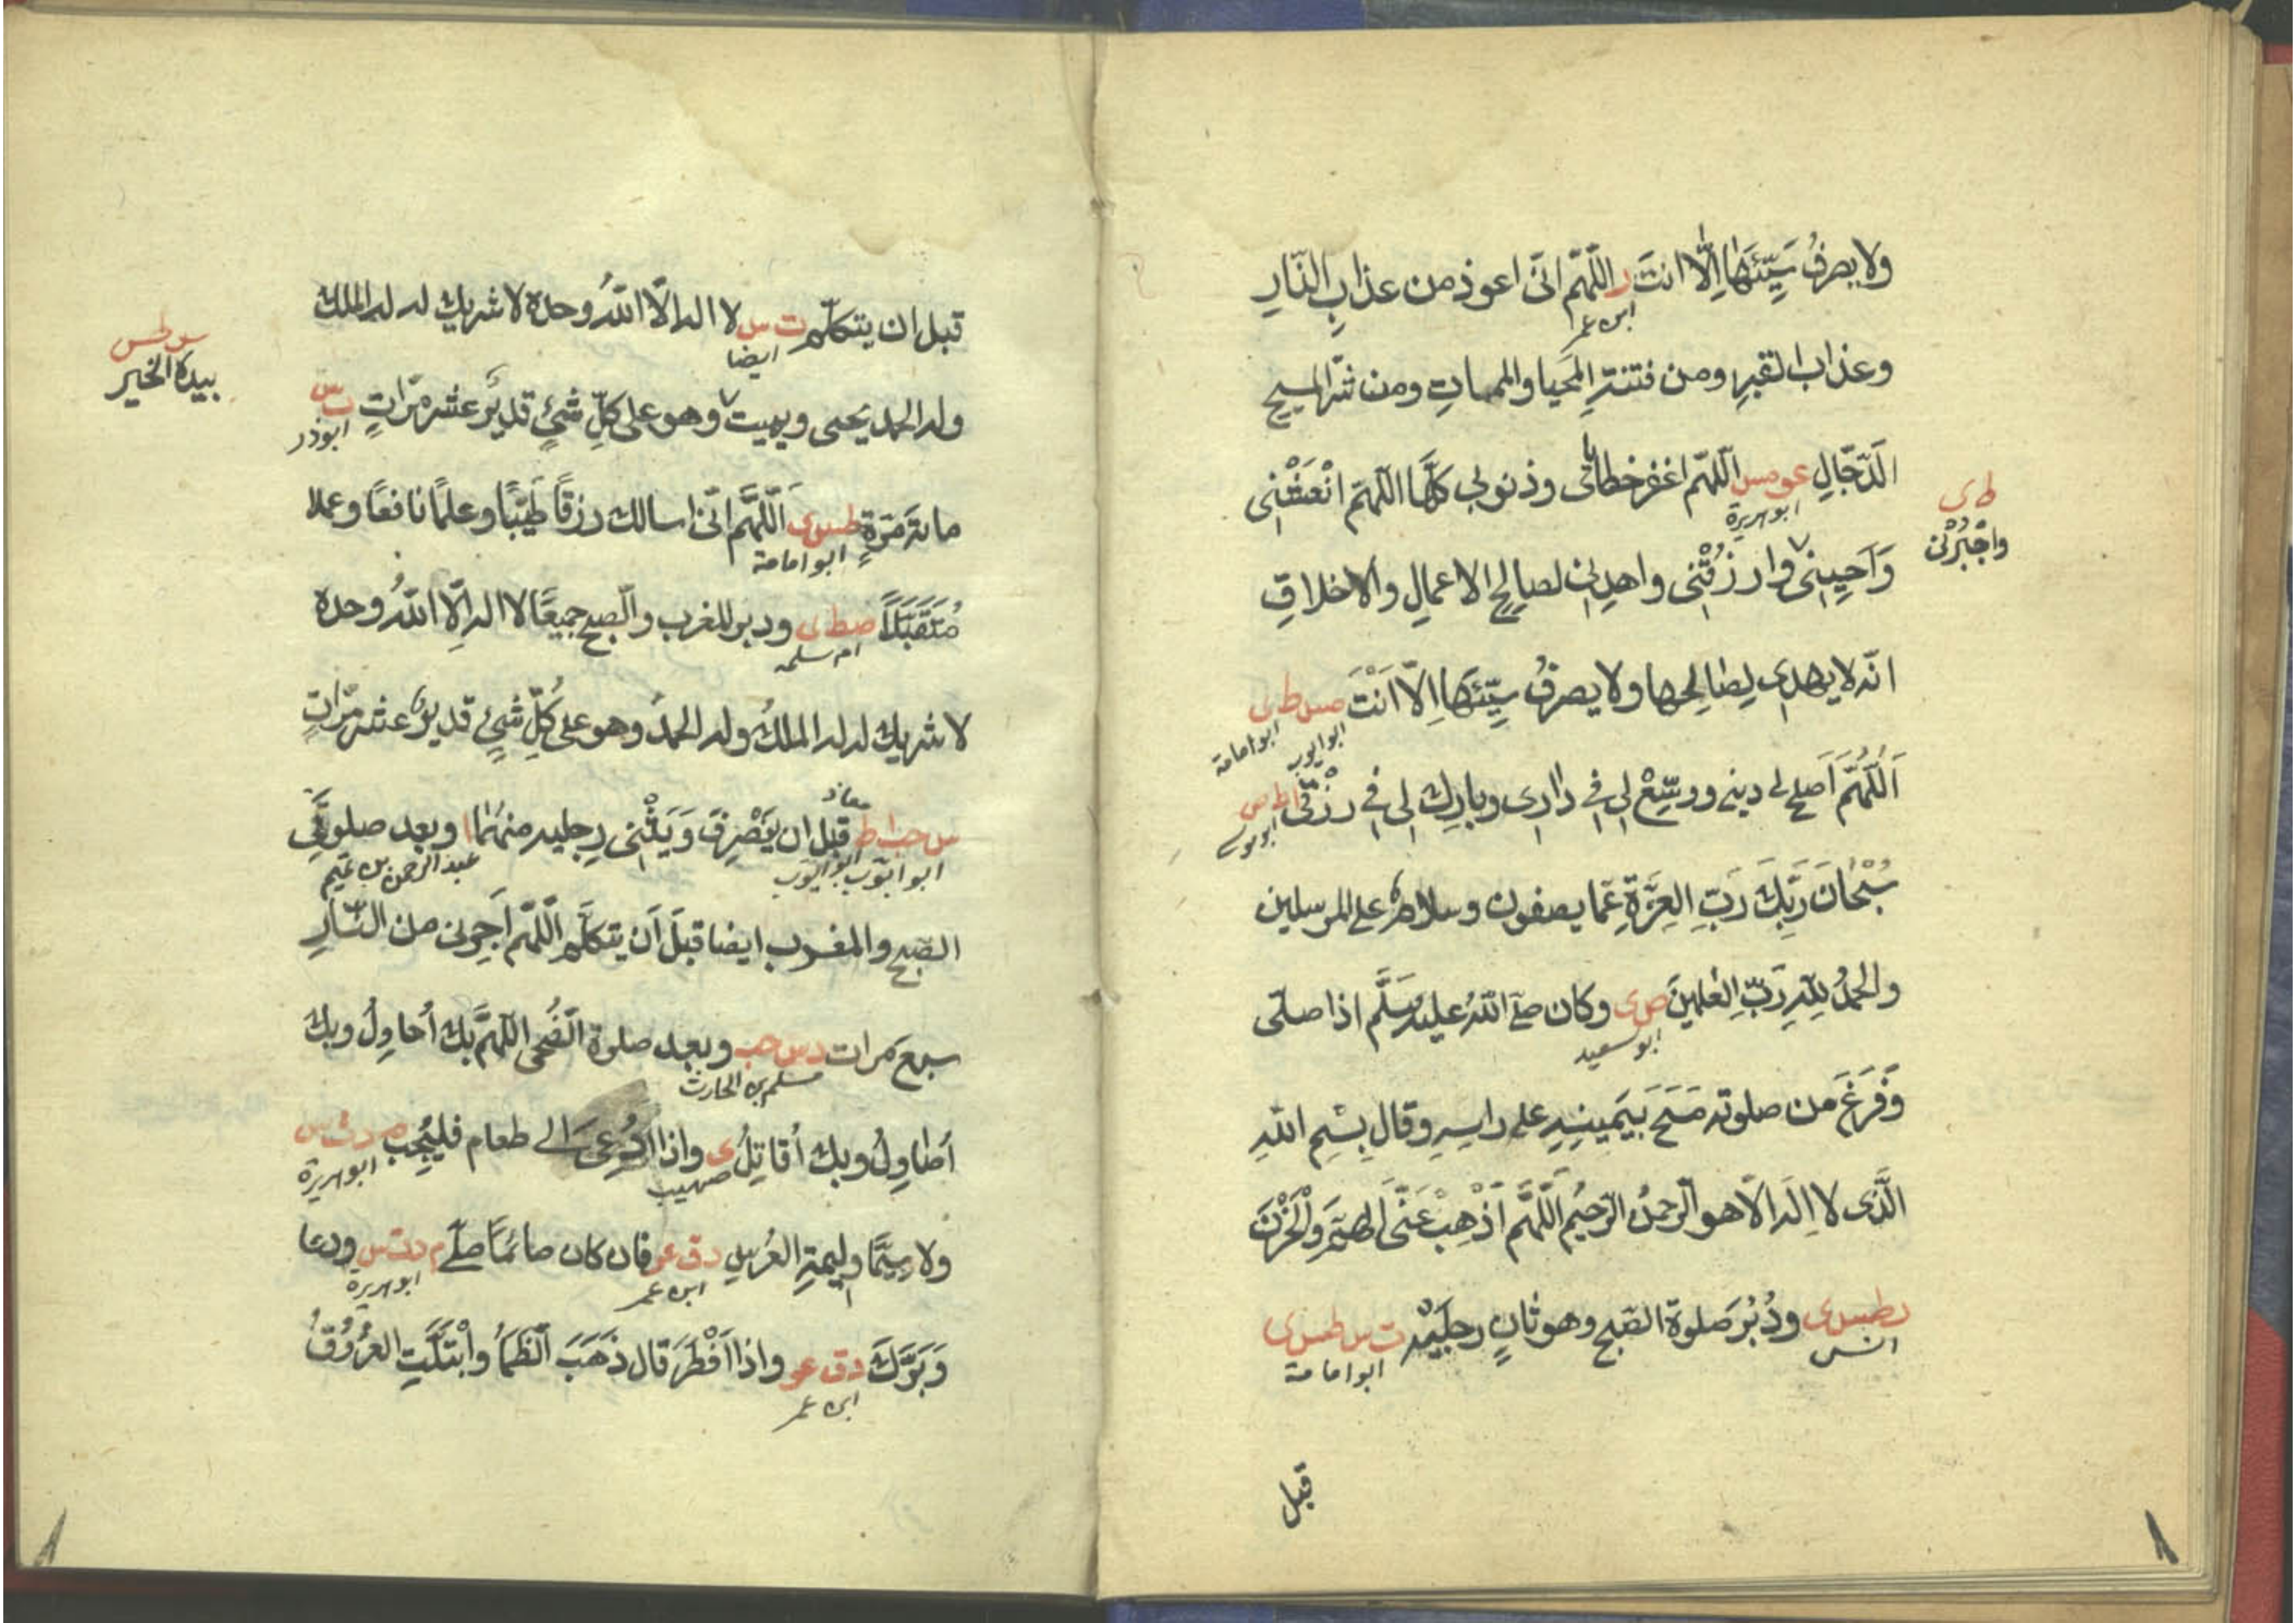 ولا يصرفُ سَيِّئَهَا اِلَّا انتَ ر اللّٰهُمّ انّى اعوذ من عذابِ النّارِ
ابن عمر
وعذاب القبرِ ومن فتنةِ المحيا والممات ومن شرّ المسيح
الدّجّالِ عو مس اللّٰهمّ اغفر خطايائى وذنوبى كلَّها اللّهمّ انْعَشْنِى
ابو هريرة
ط ى
واجْبُرْنى
وَاَحيِنِى وارزُقْنِى واهدنى لصالح الاعمالِ والاخلاقِ
انّه لا يهدى لِصَالِحها ولا يصرفُ سيِّئَهَا اِلّا اَنْتَ مس ط ى
ابو ايوب ابو امامة
اَللّٰهُمَّ اَصلح لى دينى ووسِّعْ لى فى دارى وبارك لى فى رزْقى ا ط ص
ابو موسى
سُبْحَانَ رَبِّكَ رَبِّ العِزَّةِ عمّا يصفون وسلام على المرسلين
والحمدُ للهِ رَبِّ العٰلمينَ ص ى وكان صلّى اللهُ عليه وسَلَّم اذا صلّى
ابو سعيد
وَفَرَغَ من صلوته مَسَحَ بيَمينِهِ على راسِهِ وقال بِسْمِ اللهِ
الَّذى لا اِلٰه الّا هو الرّحمنُ الرّحيمُ اللّٰهُمَّ اَذْهِبْ عَنّى الهَمَّ والْحُزْنَ
ر طس ى ودُبُرَ صلوة الصّبح وهو ثانٍ رجلَيْهِ ت س طس ى
انس
ابو امامة
قبل
قبل ان يتكلّم ت س لا اله الّا اللهُ وحده لا شريك له له الملك
ايضا
س طس
بيده الخير
وله الحمد يحيى ويميت وهو على كلِّ شىءٍ قديرٌ عشر مرّاتٍ ت س
ابوذر
مائة مَرّةٍ طس ى اَللّٰهُمَّ انّى اسالك رزقًا طَيِّبًا وعلمًا نافعًا وعملا
ابو امامة
مُتَقَبَّلًا صط ى ودبر المغرب والصّبح جميعًا لا اله اِلّا اللهُ وحده
ام سلمه
لا شريك له له الملكُ وله الحمدُ وهو على كُلِّ شىءٍ قديرٌ عشر مرّاتٍ
س حب ا ط قبل ان يَنْصَرِفَ وَيَثْنِى رجليه منهُما ا وبعد صلوتَى
معاذ
ابو ايّوب ابو ايّوب عبد الرحمن بن غنم
الصّبح والمغرب ايضا قبلَ اَن يتكلَّم اللّٰهمّ اَجِرنى من النّارِ
سبع مرات د س حب وبعد صلوة الضُّحى اللّهمَّ بك اُحاوِلُ وبك
مسلم بن الحارث
اُصاوِلُ وبك اُقاتِلُ ى واذا دُعِىَ الى طعام فليُجِب م د ت س
صهيب
ابو هريرة
ولا سِيَّما وليمةِ العُرسِ د ق عو فان كان صائمًا صلّى م د ت س ودعا
ابن عمر
ابو هريرة
وَبَرَّكَ د ق عو واذا اَفْطَرَ قال ذَهَبَ الظَّمَأُ وابْتَلَّتِ العُرُوقُ
ابن عمر